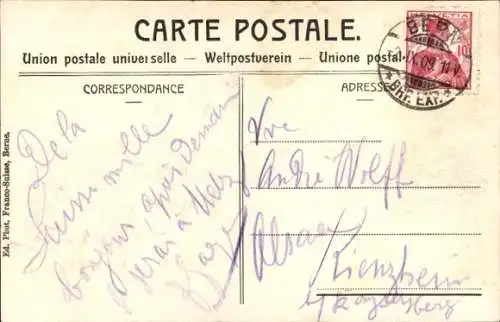 CARTE POSTALE.
Union postale universelle — Weltpostverein — Unione postale
CORRESPONDANCE
ADRESSE
HELVETIA
10
BERN
IX. 09
BHF. EXP.
Ed. Phot. Franco-Suisse, Berne.
De la
Suisse mille
bonjours, après demain
serai à Metz
Vve
André Wolff
Kienzheim
Alsace